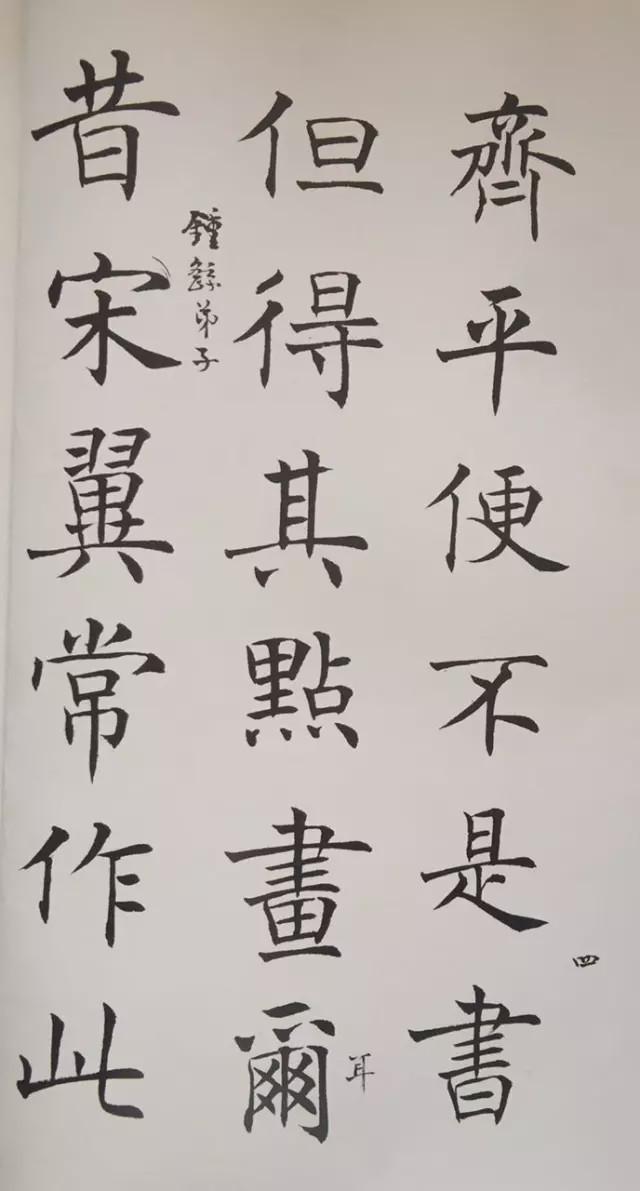 齊平便不是書
四
但得其點畫爾
耳
昔宋翼常作此
鍾繇弟子